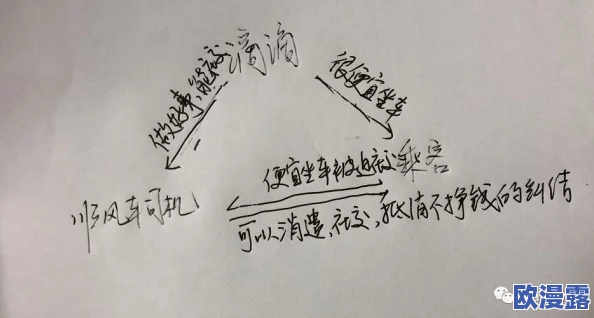 滴滴
做好事,能社交
很便宜坐车
乘客
便宜坐车被迫社交
顺风车司机
可以消遣,社交,抵消不挣钱的纠结
欧漫露